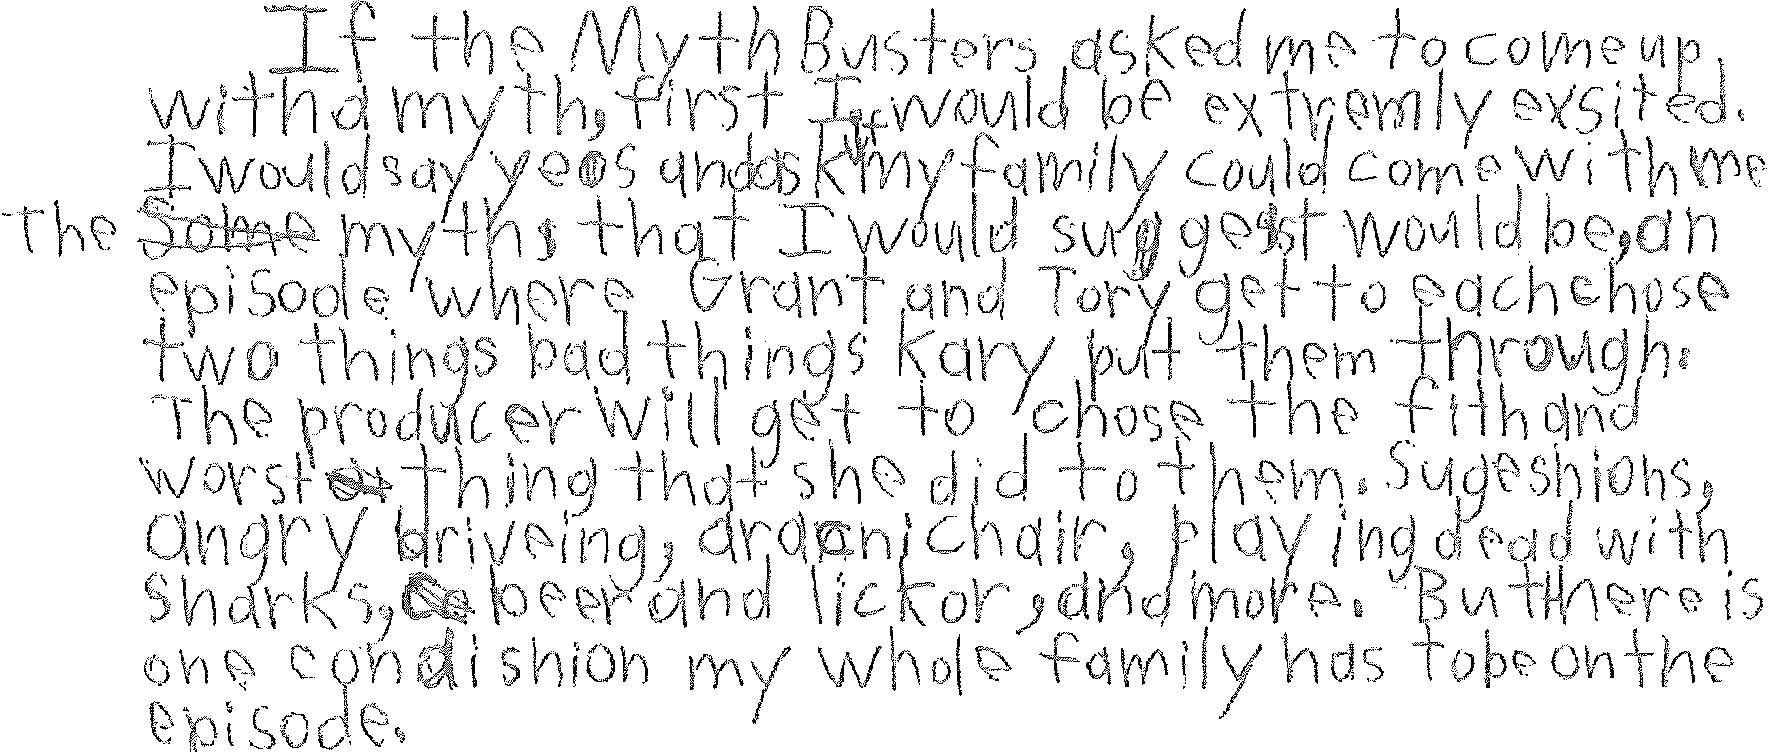 If the Myth Busters asked me to come up
with a myth, first I would be extremly exsited.
I would say yes and ask if my family could come with me
The myth, that I would suggest would be, an
episode where Grant and Tory get to each chose
two things bad things Kary put them through.
The producer will get to chose the fith and
worst thing that she did to them. Sugeshions,
angry driveing, chair, playing dead with
sharks, beer and lickor, and more. But there is
one condishion my whole family has to be on the
episode.